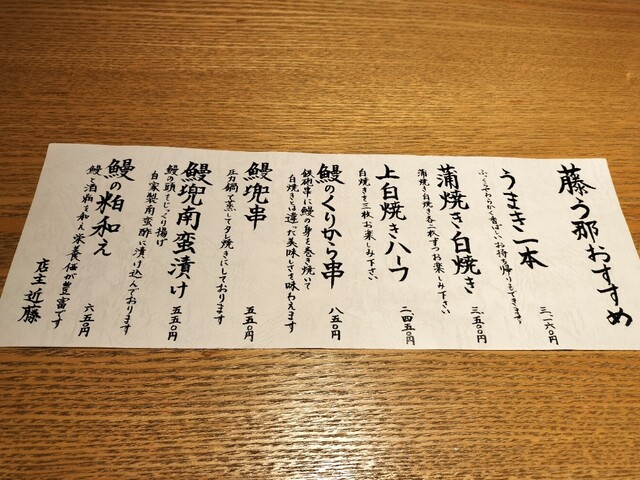 藤う那おすすめ
うまき一本
ふっくらやわらかく香ばしい お持ち帰りもできます
三、一六〇円
蒲焼き白焼き
蒲焼き白焼き各二枚ずつお楽しみ下さい
三、五五〇円
上白焼きハーフ
白焼きを二枚お楽しみ下さい
二、四五〇円
鰻のくりから串
鉄砲串に鰻の身を巻き焼いて
白焼きとは違った美味しさを味わえます
八五〇円
鰻兜串
圧力鍋で蒸してタレ焼きにしております
五五〇円
鰻兜南蛮漬け
鰻の頭をじっくり揚げ
自家製南蛮酢に漬け込んでおります
五五〇円
鰻の粕和え
鰻と酒粕を和え栄養価が豊富です
六五〇円
店主 近藤